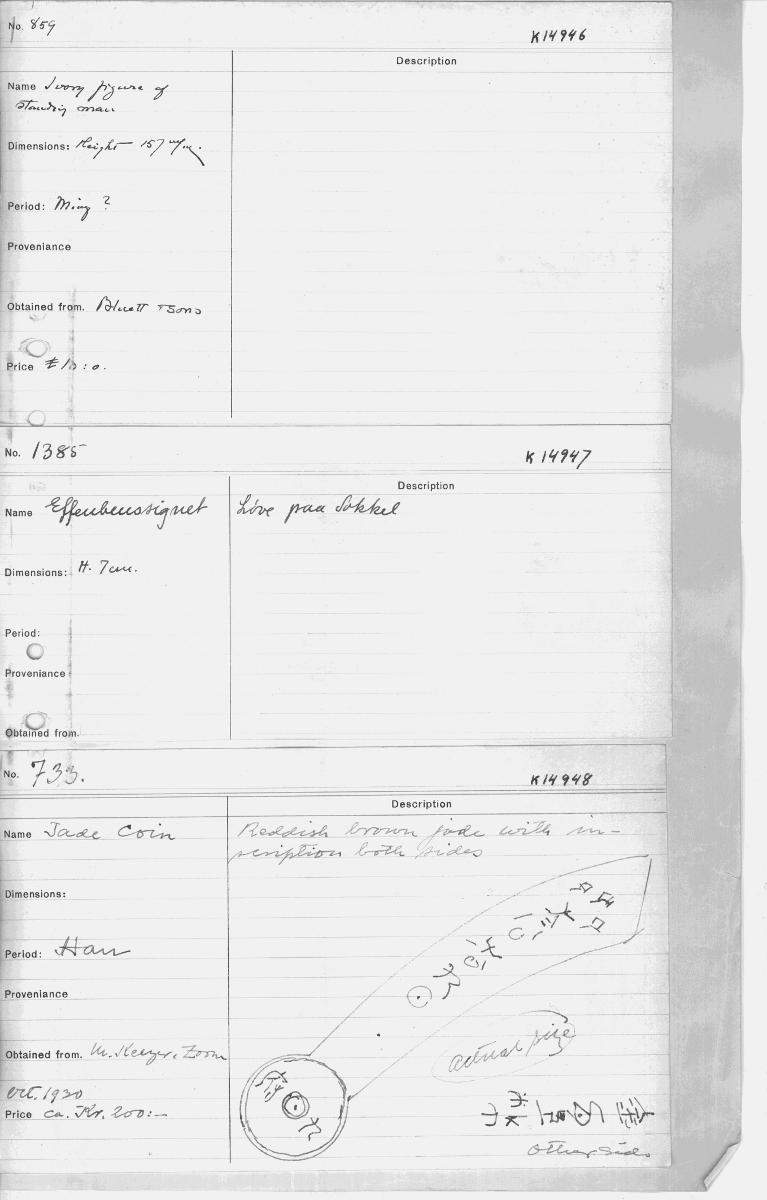 No. 859
K14946
Description
Name Ivory figure of
standing man
Dimensions: Height 157 m/m.
Period: Ming ?
Proveniance
Obtained from. Bluett & Sons
Price
No. 1385
K 14947
Description
Name
Løve paa Sokkel
Dimensions: H. 7cm.
Period:
Proveniance
Obtained from.
No. 733.
K14948
Description
Name Jade Coin
Reddish brown jade with in-
scription both sides
Dimensions:
Period: Han
Proveniance
Obtained from.
actual size
Oct. 1930
Price ca. Kr. 200:-
other side